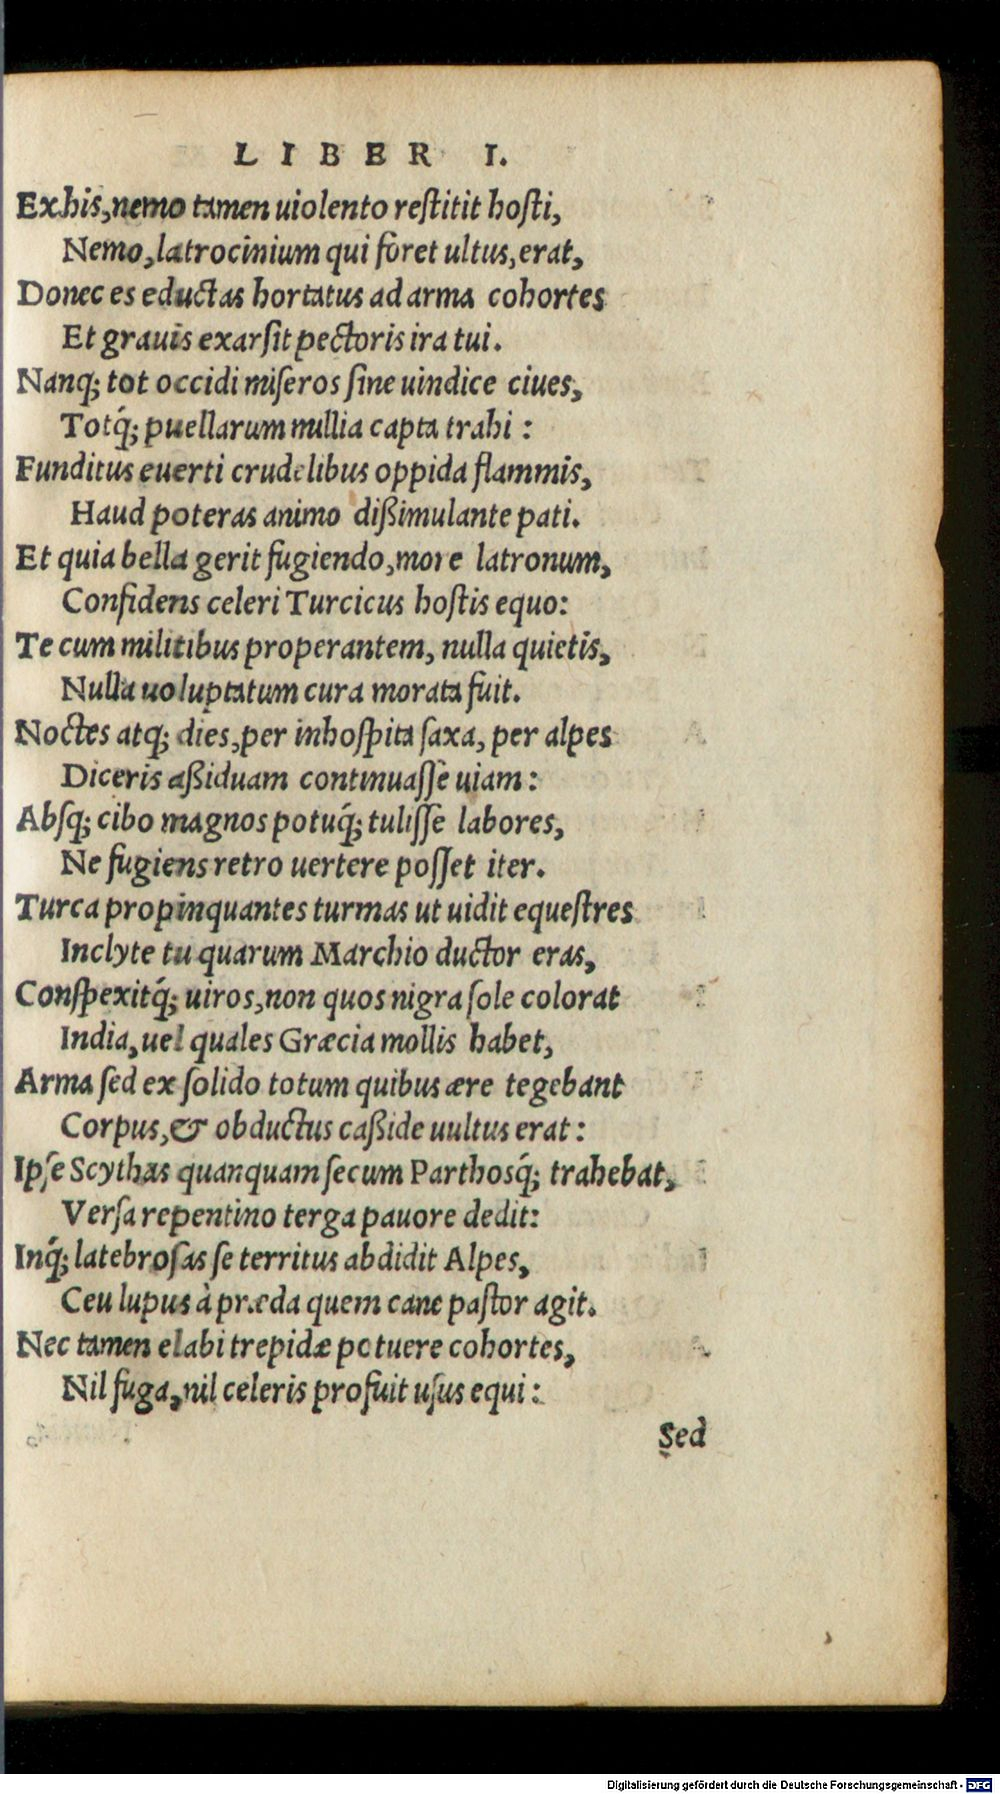 LIBER I.
Ex his, nemo tamen uiolento restitit hosti,
Nemo, latrocinium qui foret ultus, erat,
Donec es eductas hortatus ad arma cohortes
Et grauis exarsit pectoris ira tui.
Nanq; tot occidi miseros sine uindice ciues,
Totq́; puellarum millia capta trahi:
Funditus euerti crudelibus oppida flammis,
Haud poteras animo dißimulante pati.
Et quia bella gerit fugiendo, more latronum,
Confidens celeri Turcicus hostis equo:
Te cum militibus properantem, nulla quietis,
Nulla uoluptatum cura morata fuit.
Noctes atq; dies, per inhospita saxa, per alpes
Diceris aßiduam continuasse uiam:
Absq; cibo magnos potuq́; tulisse labores,
Ne fugiens retro uertere posset iter.
Turca propinquantes turmas ut uidit equestres
Inclyte tu quarum Marchio ductor eras,
Conspexitq́; uiros, non quos nigra sole colorat
India, uel quales Græcia mollis habet,
Arma sed ex solido totum quibus ære tegebant
Corpus, & obductus caßide uultus erat:
Ipse Scythas quanquam secum Parthosq́; trahebat,
Versa repentino terga pauore dedit:
Inq́; latebrosas se territus abdidit Alpes,
Ceu lupus à præda quem cane pastor agit.
Nec tamen elabi trepidæ potuere cohortes,
Nil fuga, nil celeris profuit usus equi:
Sed
Digitalisierung gefördert durch die Deutsche Forschungsgemeinschaft - DFG